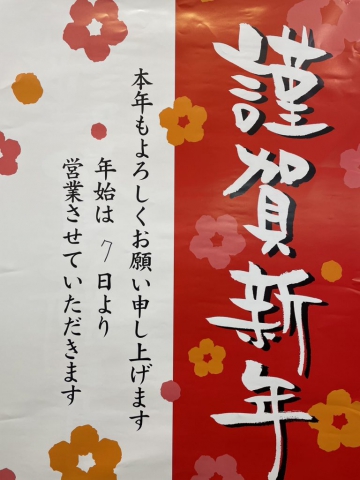 謹賀新年
本年もよろしくお願い申し上げます
年始は 7 日より
営業させていただきます